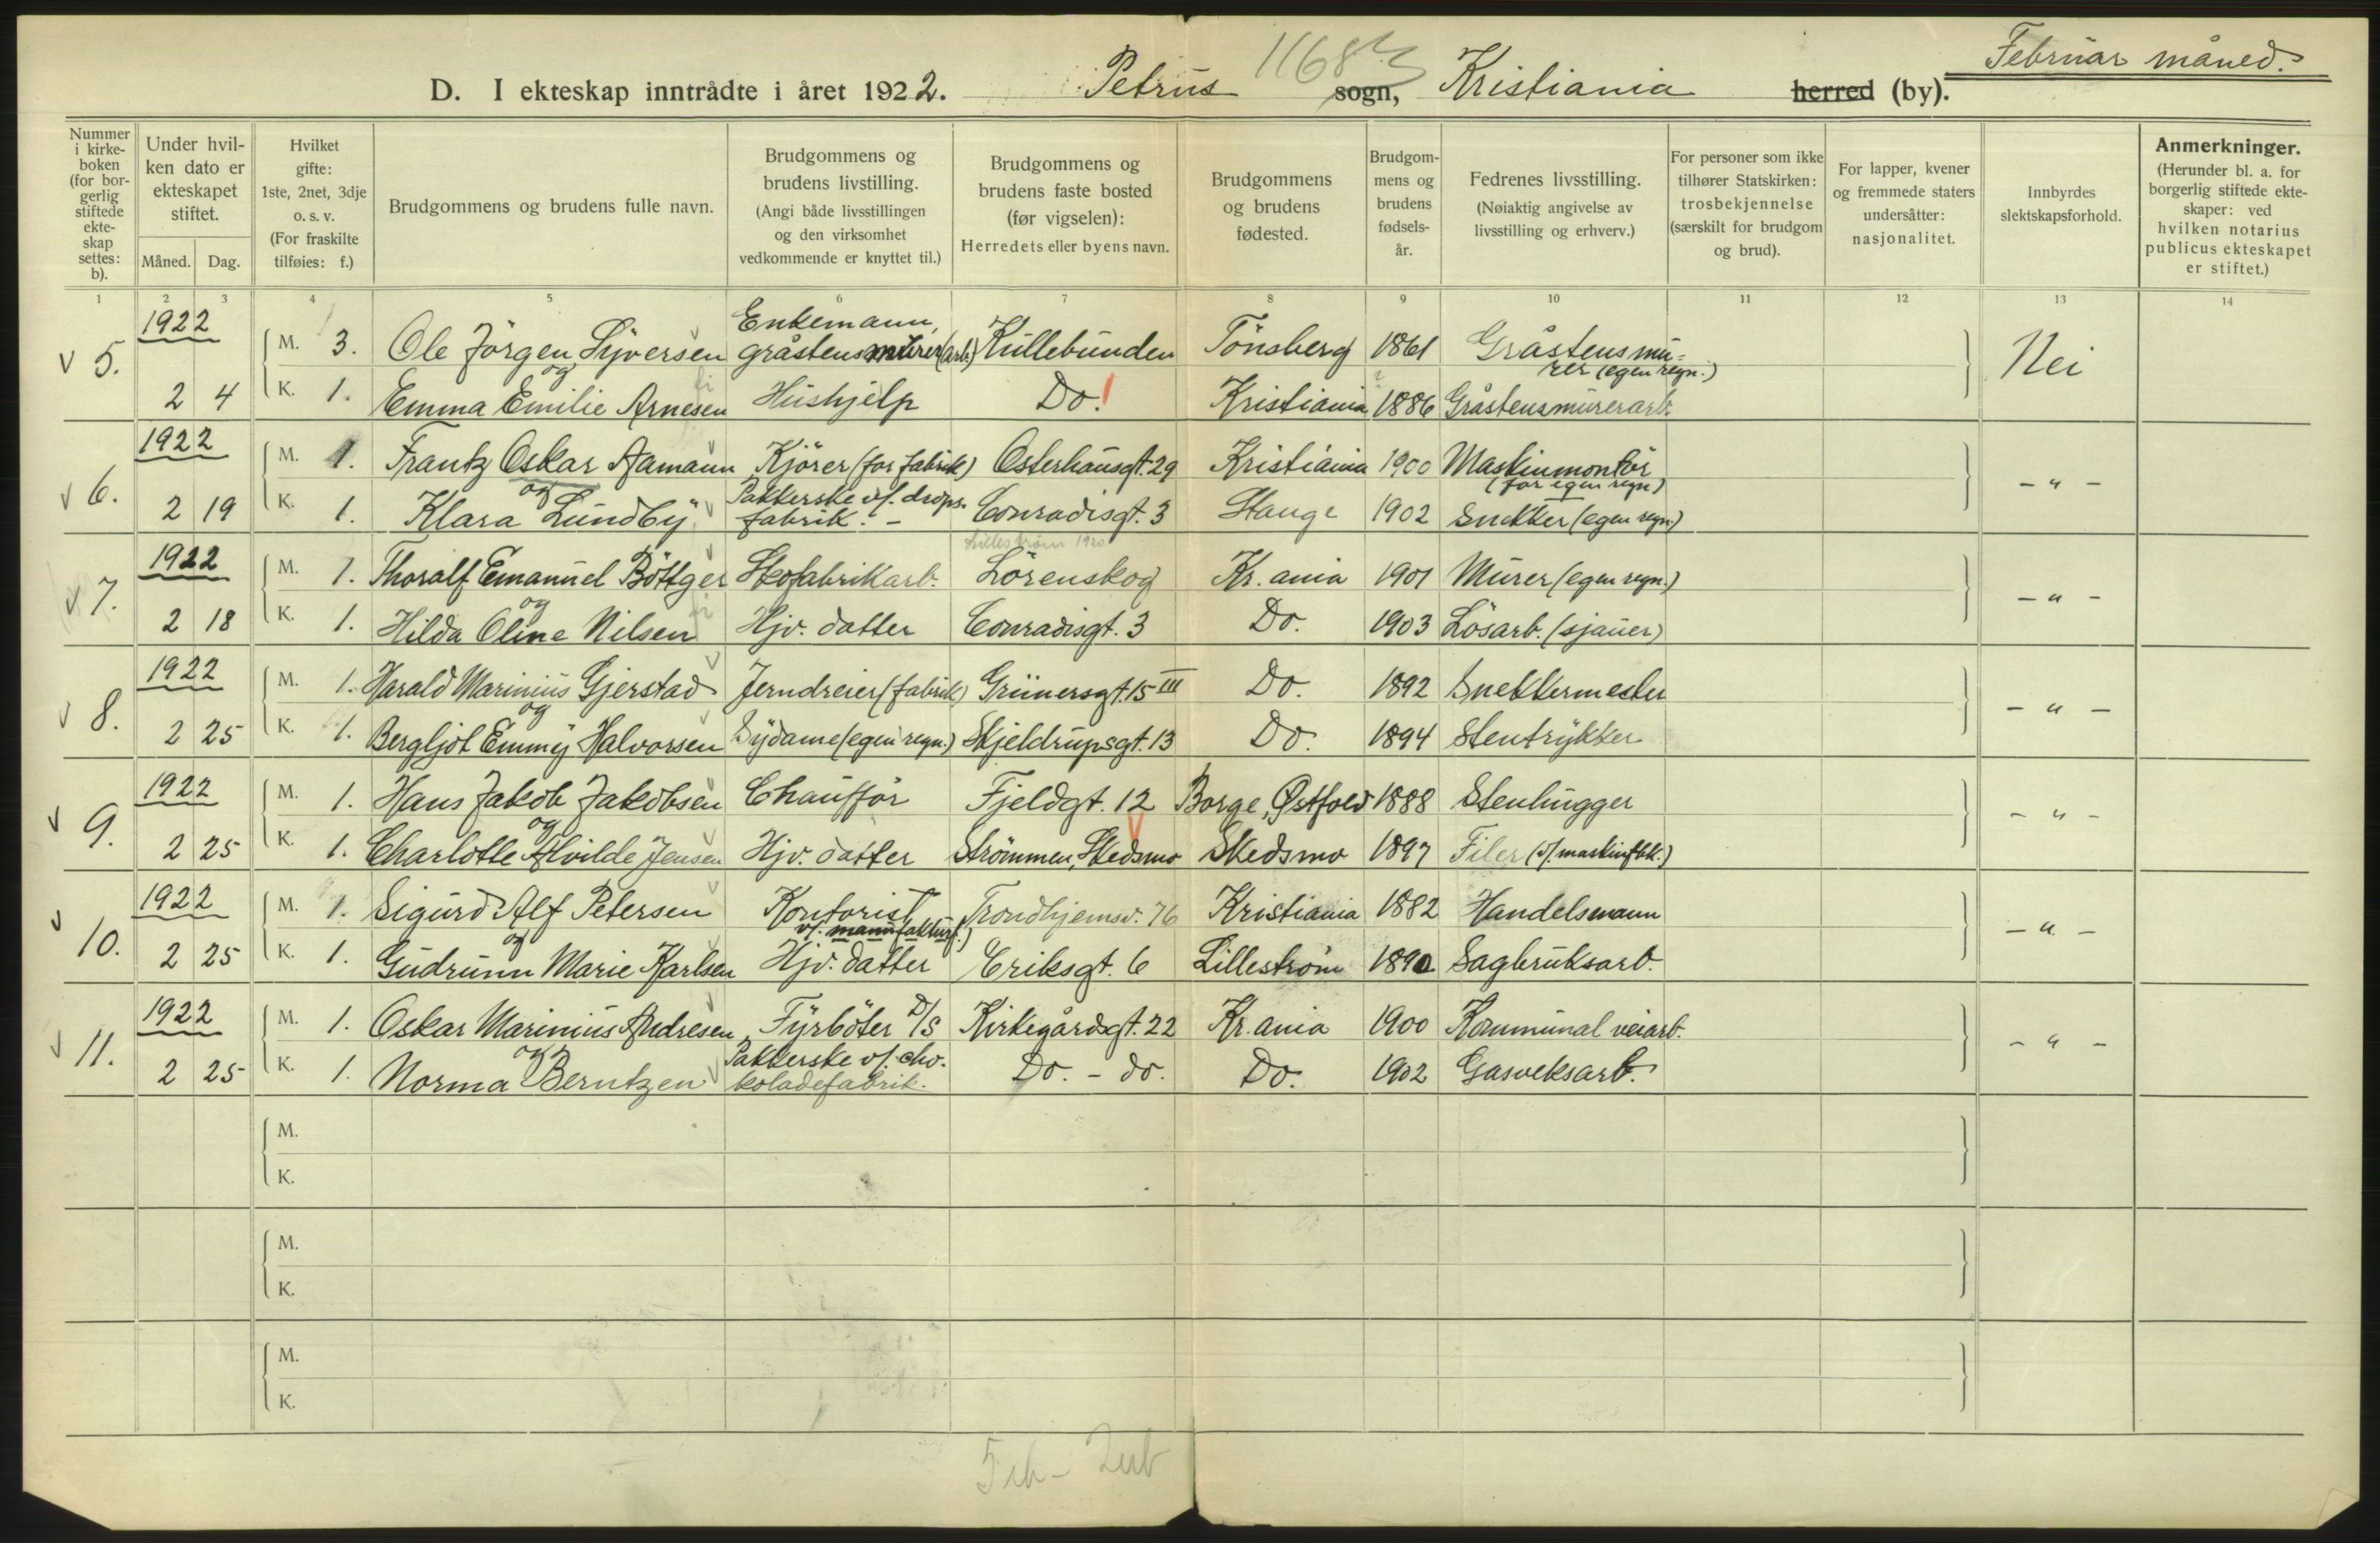 Februar måned.
D. I ekteskap inntrådte i året 1922. Petrus sogn, Kristiania herred (by).
1168
Nummer i kirke-boken (for bor-gerlig stiftede ekte-skap settes: b).
Under hvil-ken dato er ekteskapet stiftet.
Måned. Dag.
Hvilket gifte: 1ste, 2net, 3dje o. s. v. (For fraskilte tilføies: f.)
Brudgommens og brudens fulle navn.
Brudgommens og brudens livstilling. (Angi både livsstillingen og den virksomhet vedkommende er knyttet til.)
Brudgommens og brudens faste bosted (før vigselen): Herredets eller byens navn.
Brudgommens og brudens fødested.
Brudgom-mens og brudens fødsels-år.
Fedrenes livsstilling. (Nøiaktig angivelse av livsstilling og erhverv.)
For personer som ikke tilhører Statskirken: trosbekjennelse (særskilt for brudgom og brud).
For lapper, kvener og fremmede staters undersåtter: nasjonalitet.
Innbyrdes slektskapsforhold.
Anmerkninger. (Herunder bl. a. for borgerlig stiftede ekte-skaper: ved hvilken notarius publicus ekteskapet er stiftet.)
1 2 3 4 5 6 7 8 9 10 11 12 13 14
v 5. 1922 M. 3. Ole Jörgen Syversen Enkemann, gråstensmurer (arb.) Kullebunden Tönsberg 1861 Gråstensmu=rer (egen regn.) Nei
og
2 4 K. 1. Emma Emilie Arnesen Hushjelp Do! Kristiania 1886 Gråstensmurerarb.
v 6. 1922 M. 1. Frantz Oskar Aamann Kjörer (for fabrik) Osterhausgt. 29 Kristiania 1900 Maskinmontör (for egen regn) - " -
og
2 19 K. 1. Klara Lundby Pakkerske v/. drops. fabrik. - Conradisgt. 3 Stange 1902 Snekker (egen regn.)
Lilleström 1920
v 7. 1922 M. 1. Thoralf Emanuel Böttger Skofabrikarb. Lörenskog Kr.ania 1901 Murer (egen regn.) - " -
og
2 18 K. 1. Hilda Oline Nilsen Hjv. datter Conradisgt. 3 Do. 1903 Lösarb. (sjauer)
v 8. 1922 M. 1. Harald Marinius Gjerstad Jerndreier (fabrik) Grünersgt. 15 III Do. 1892 Snekkermester - " -
og
2 25 K. 1. Bergljot Emmy Halvorsen Sydame (egen regn.) Skjeldrupsgt. 13 Do. 1894 Stentrykker
v 9. 1922 M. 1. Hans Jakob Jakobsen Chauffør Fjeldgt. 12 Borge, Østfold 1888 Stenhugger - " -
og
2 25 K. 1. Charlotte Alvilde Jensen Hjv. datter Strömmen, Skedsmo Skedsmo 1897 Filer (v/ maskinfbk.)
v 10. 1922 M. 1. Sigurd Alf Petersen Kontorist v/. manufakturf.) Trondhjemsv. 76 Kristiania 1882 Handelsmann - " -
og
2 25 K. 1. Gudrunn Marie Karlsen Hjv. datter Eriksgt. 6 Lilleström 1890 Sagbruksarb.
v 11. 1922 M. 1. Oskar Marinius Andresen Fyrböter D/S Kirkegårdsgt. 22 Kr.ania 1900 Kommunal veiarb. - " -
og
2 25 K. 1. Norma Berntzen Pakkerske v/. cho. koladefabrik. Do. - do. Do. 1902 Gasveksarb.
M.
K.
M.
K.
M.
K.